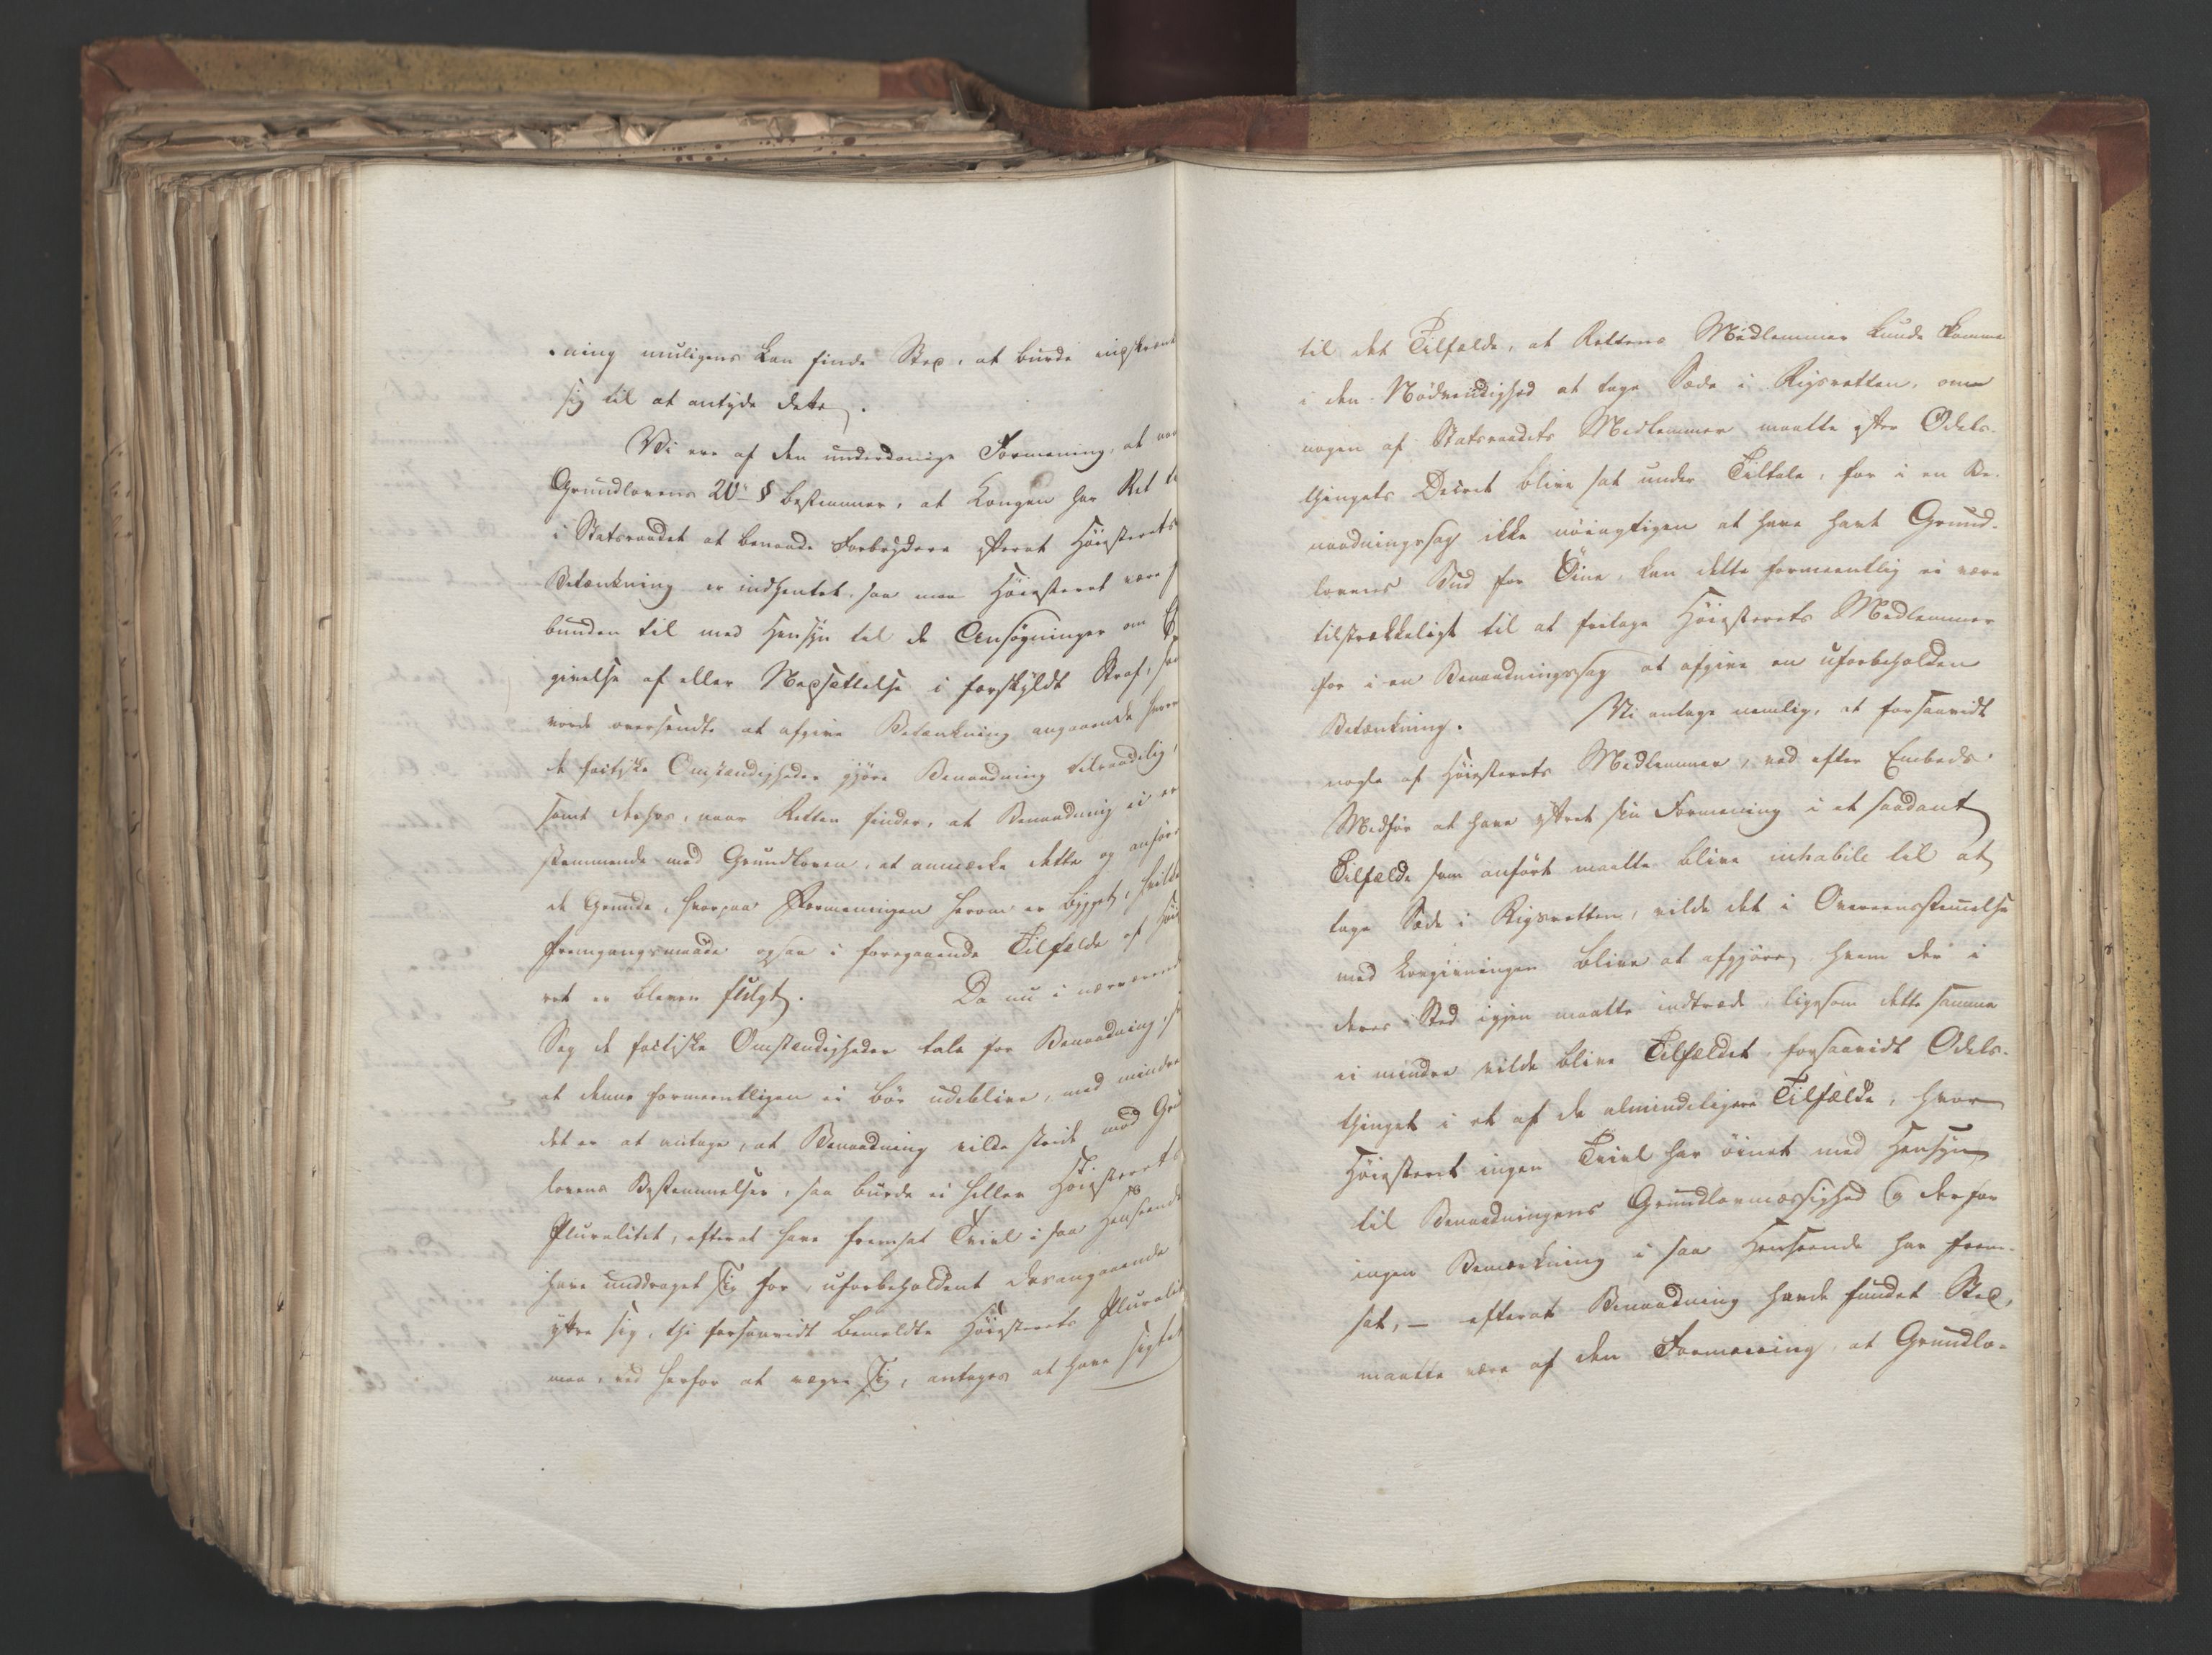 ning muligens kan finde Sted, at burde indskrænk
sig til at antyde dette.
Vi ere af den underdanige Formening, at naar
Grundlovens 20de § bestemmer, at Kongen har Ret ti
i Statsraadet at benaade Forbrydere efterat Høiesterets
Betænkning er indhentet, saa maa Høiesteret være f
bunden til med Hensyn til de Ansøgninger om E
givelse af eller Nedsættelse i forskyldt Straf, som
vorde oversendte at afgive Betænkning angaaende hvor
de factiske Omstændigheder gjøre Benaadning tilraadelig,
samt derhos, naar Retten finder, at Benaadning ei er
stemmende med Grundloven, at anmærke dette og anføre
de Grunde, hvorpaa Formeningen herom er bygget, hvilke
Fremgangsmaade ogsaa i foregaaende Tilfælde af Høi
ret er bleven fulgt. Da nu i nærværend
Sag de factiske Omstændigheder tale for Benaadning, s
at denne formeentligen ei bør udeblive, med mindre
det er at antage, at Benaadning vilde stride mod Gru
lovens Bestemmelser, saa burde ei heller Høiesterets
Pluralitet, efterat have fremsat Tvivl i saa Henseende
have unddraget sig for uforbeholdent desangaaende
yttre sig, thi forsaavidt bemeldte Høiesterets Pluralit
maa, ved herfor at vægre sig, antages at have sigtet
til det Tilfælde, at Rettens Medlemmer kunde komme
i den Nødvendighed at tage Sæde i Rigsretten, om
nogen af Statsraadets Medlemmer maatte efter Odels-
thingets Decret blive sat under Tiltale, for i en Be-
naadningssag ikke nøiagtigen at have havt Grund-
lovens Bud for Øine, kan dette formeentlig ei være
tilstrækkeligt til at fritage Høiesterets Medlemmer
for i en Benaadningssag at afgive en uforbeholden
Betænkning. Vi antage nemlig, at forsaavidt
nogle af Høiesterets Medlemmer, ved efter Embeds
Medfør at have yttret sin Formening i et saadant
Tilfælde som anført maatte blive inhabile til at
tage Sæde i Rigsretten, vilde det i Overeensstemmelse
med Lovgivningen blive at afgjøre, hvem der i
deres Sted igjen maatte indtræde ligesom dette samme
ei mindre vilde blive Tilfældet, forsaavidt Odels-
thinget i et af de almindeligere Tilfælde, hvor
Høiesteret ingen Tvivl har øinet med Hensyn
til Benaadningens Grundlovmæssighed og derfor
ingen Bemærkning i saa Henseende har frem-
sat, – efterat Benaadning havde fundet Sted,
maatte være af den Formening, at Grundlo-